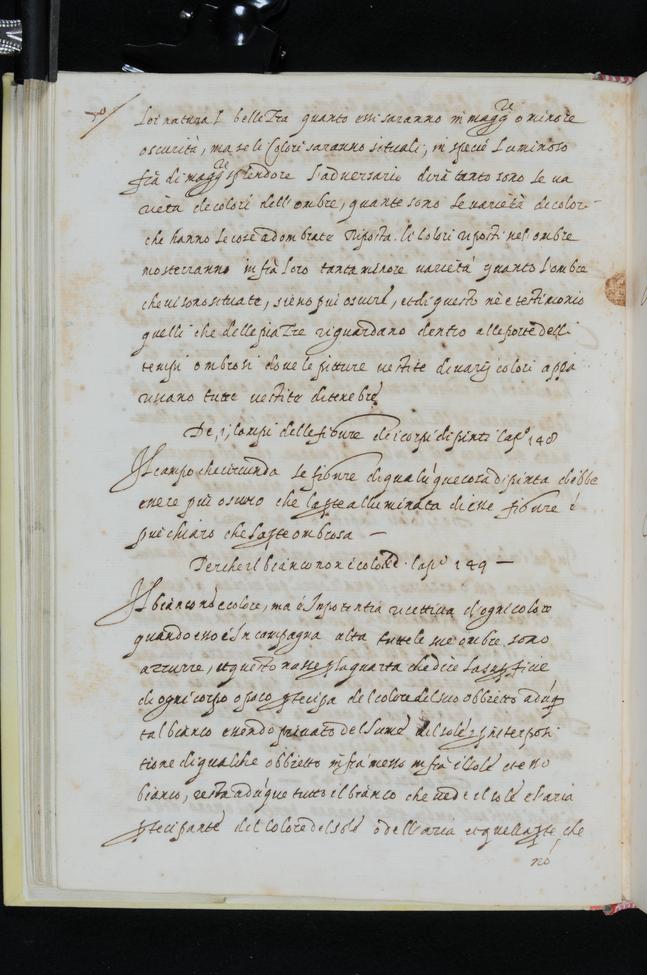 loi natural bellezza quanto essi saranno in magg.re o minore
oscurità, ma se li Colori saranno situati, in spatio Luminoso
fia di magg.re splendore l'adversario dirà tanto sono le va
rietà de colori dell'ombre, quante sono le varietà de colori
che hanno le cose adombrate Risposta. li Colori posti nel ombre
mosterranno infra loro tanta minore varietà quanto l'ombre
che vi sono situate, sieno più oscure, et di questo nè è testimonio
quelli che delle piazze riguardano dentro alle porte delli
tempi ombrosi dove le pitture vestite di varij colori appa
riscano tutte vestite di tenebre
De campi delle figure de i corpi dipinti Cap.o 148
Il campo che circunda le figure di qualunque cosa dipinta debbe
essere più oscuro che la pte alluminata di esse figure è
più chiaro che la pte ombrosa —
Perche il bianco non è colore Cap.o 149 —
Il bianco nõ è colore, ma è In potentia ricettiva d'ogni colore
quando esso è In campagna alta tutte le sue ombre sono
azzurre, et questo nasce p la quarta che dice La supfitie
di ogni corpo opaco ptecipa del colore del suo obbietto adũq
tal bianco essendo privato del lume del sole p interposi
tione di qualche obbietto infra messo infra il sole et esso
bianco, resta adũque tutto il bianco che vede el sole e l'aria
ptecipante del colore del sole o dell'aria et quella pte che
nõ